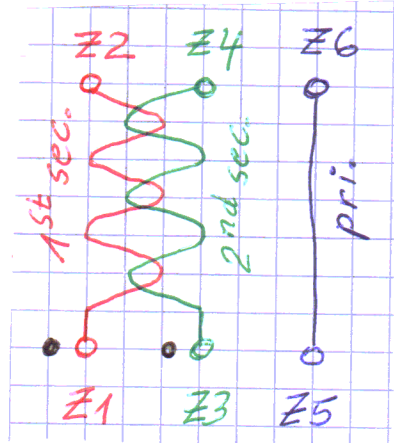 Z2 Z4 Z6
1st sec.
2nd sec.
pri.
Z1 Z3 Z5